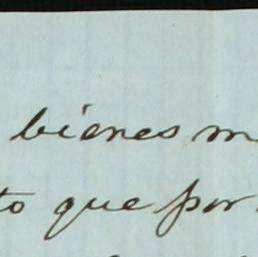 bienes m
to que por